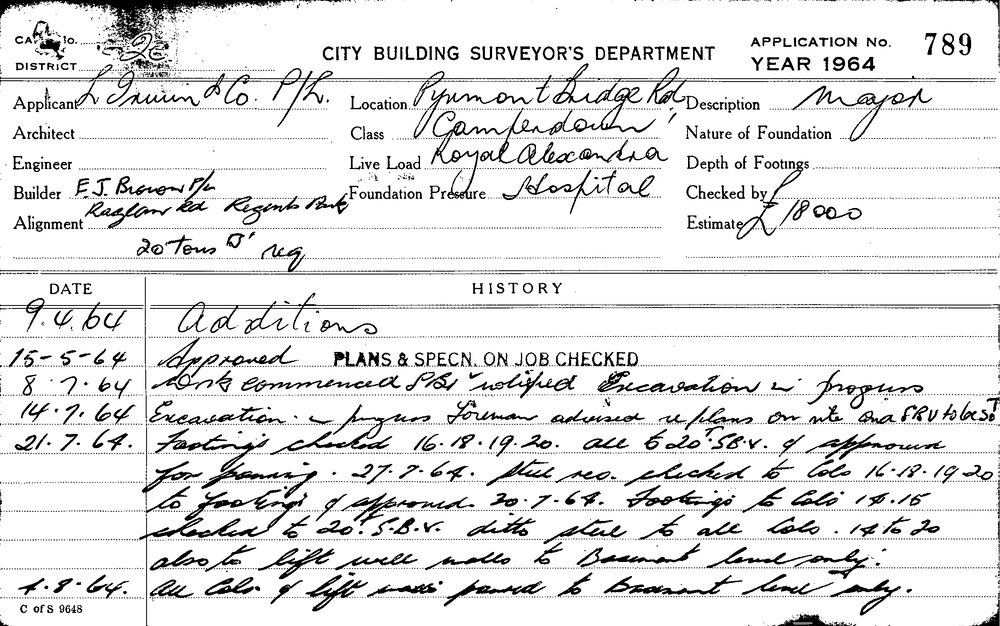 CITY BUILDING SURVEYOR'S DEPARTMENT
APPLICATION No. 789
YEAR 1964
DISTRICT
Applicant L Irwin & Co. P/L.
Location Pyrmont Bridge Rd,
Description Major
Architect
Class Camperdown
Nature of Foundation
Engineer
Live Load Royal Alexandra
Depth of Footings
Builder E.J. Brown P/L
Foundation Pressure Hospital
Checked by
Raglan Rd Regents Park
Alignment
Estimate £18000
20 Tons req
DATE HISTORY
9.4.64 Additions
15-5-64 Approved PLANS & SPECN. ON JOB CHECKED
8.7.64 Work commenced notified Excavation in progress
14.7.64 Excavation in progress Foreman advised re plans on site and S.B.V to be
21.7.64. Footings checked 16.18.19.20. all to 20T S.B.V. & approved
for pouring. 27.7.64. Steel reo. checked to Cols 16.18.19.20
to footings & approved. 20.7.64. Footings to Cols 14.15
checked to 20T. S.B.V. ditto steel to all Cols. 14 to 20
also to lift well walls to Basement level only.
4.8.64. All Cols. & lift walls poured to Basement level only.
C of S 9648